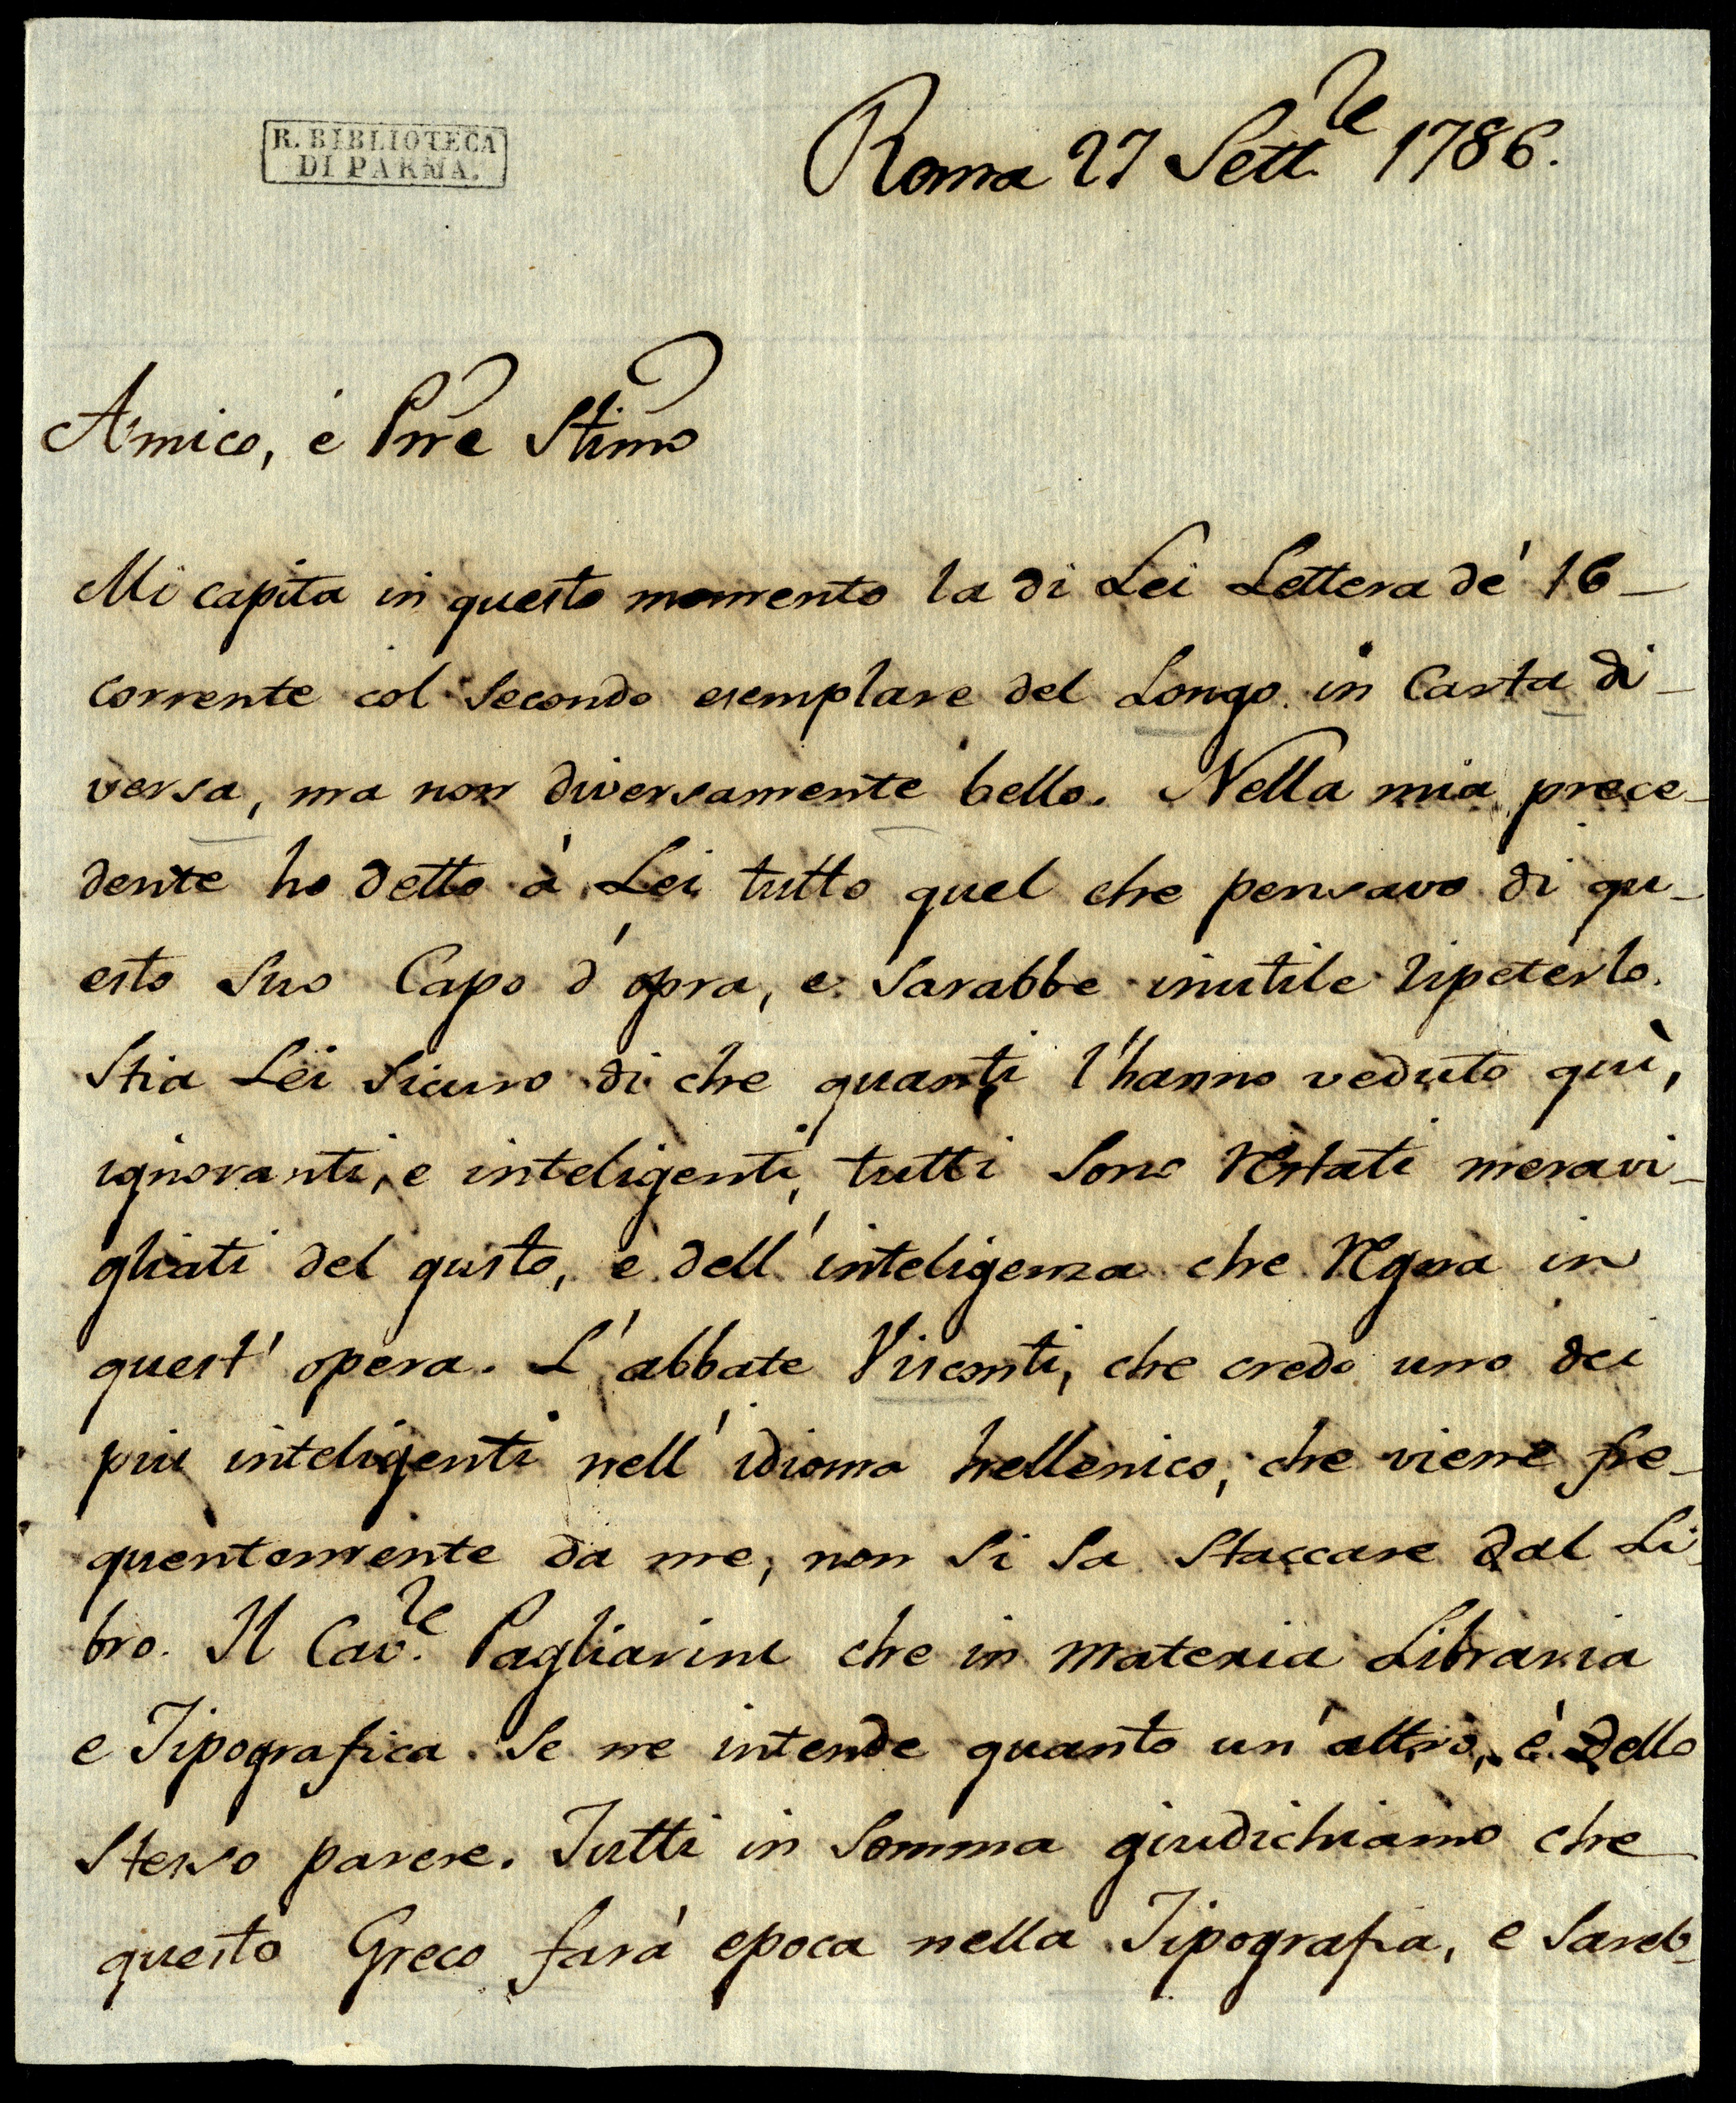 R. BIBLIOTECA
DI PARMA.
Roma 27 Sett.re 1786.
Amico, é Pne Stimo
Mi capita in questo momento la di Lei Lettera dé 16
corrente col secondo esemplare del Longo in Carta di-
versa, ma non diversamente bello. Nella mia prece-
dente ho detto à Lei tutto quel che pensavo di qu-
esto suo Capo d'opra, e sarabbe inutile ripeterlo.
Stia Lei sicuro di che quanti l'hanno veduto quì,
ignoranti, e inteligenti, tutti sono restati meravi-
gliati del gusto, e dell'inteligenza che regna in
quest'opera. L'abbate Visconti, che credo uno dei
piu inteligenti nell'idioma hellenico, che viene fre-
quentemente da me, non si sa staccare dal Li-
bro. Il Cav.re Pagliarini che in materia Libraria
e Tipografica se ne intende quanto un'altro, è dello
stesso parere. Tutti in somma giudichiamo che
questo Greco farà epoca nella Tipografia, e sareb-